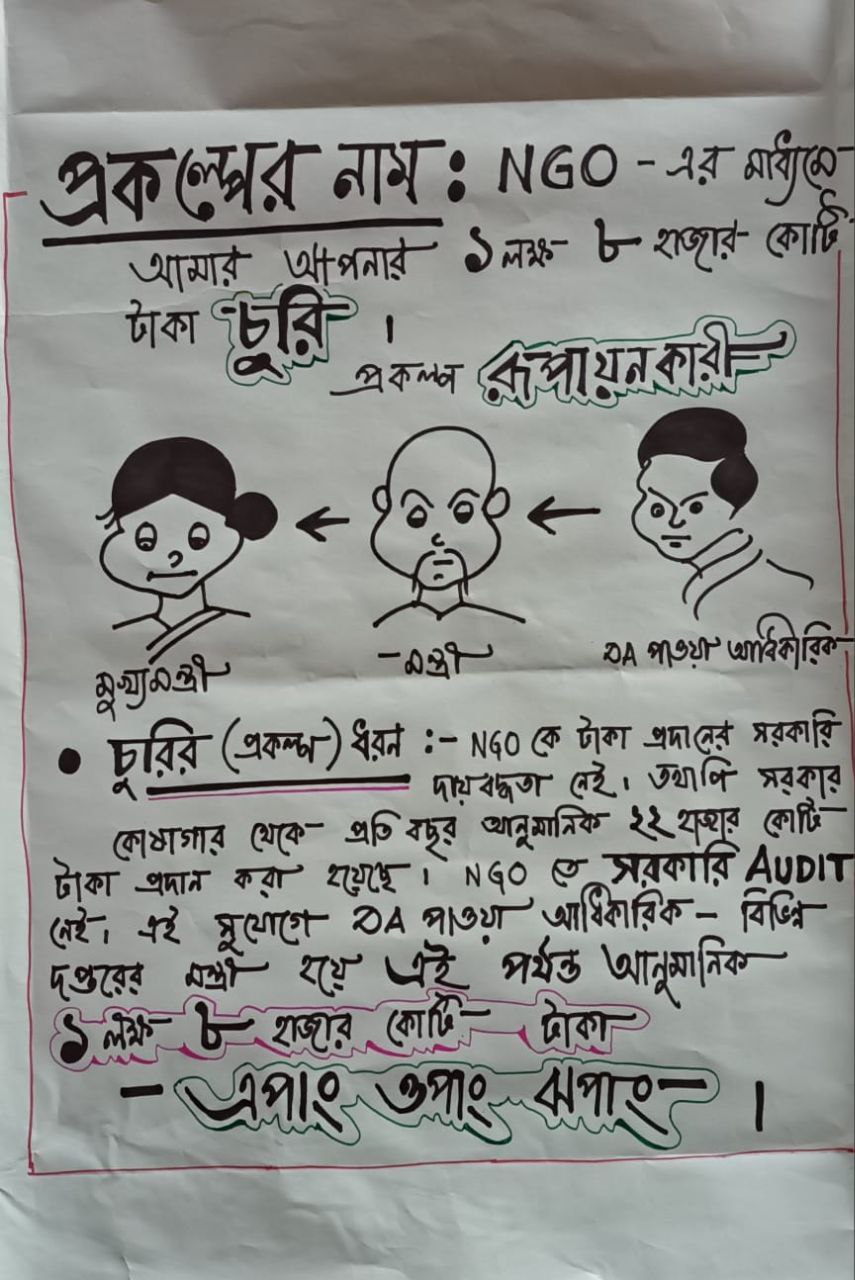 প্রকল্পের নাম : NGO - এর মাধ্যমে
আমার আপনার ১ লক্ষ ৮ হাজার কোটি
টাকা চুরি ।
প্রকল্প রূপায়নকারী
মুখ্যমন্ত্রী মন্ত্রী DA পাওয়া আধিকারিক
• চুরির (প্রকল্প) ধরন :- NGO কে টাকা প্রদানের সরকারি
দায়বদ্ধতা নেই। তথাপি সরকার
কোষাগার থেকে প্রতি বছর আনুমানিক ২২ হাজার কোটি
টাকা প্রদান করা হয়েছে। NGO তে সরকারি AUDIT
নেই। এই সুযোগে DA পাওয়া আধিকারিক - বিভিন্ন
দপ্তরের মন্ত্রী হয়ে এই পর্যন্ত আনুমানিক
১ লক্ষ ৮ হাজার কোটি টাকা
- এপাং ওপাং ঝপাং ।